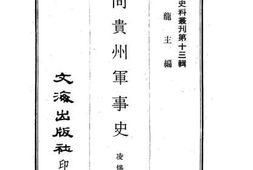 史料叢刊第十三輯
龍主編
同貴州軍事史
凌惕
文海出版社印